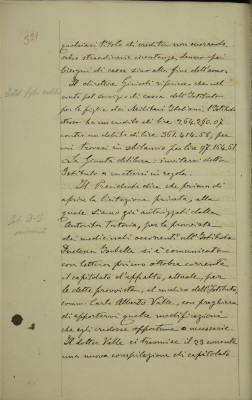 321
qualsiasi titolo di credito non essendo,
salvo straordinarie circostanze, denaro pei
bisogni di cassa sino alla fine dell'anno.
Il direttore riferisce che nel
conto pel servizio di cassa dell'Istituto
per le figlie dei Militari Italiani, l'Istituto
stesso ha un credito di lire 264.260.07
contro un debito di lire 361.414.58, per
cui trovasi in sbilancio per lire 97.154.51
La Giunta delibera: invitarsi detto
Istituto a mettersi in regola.
Il Presidente dice che prima di
aprire la licitazione privata, alla
quale siamo già autorizzati dalla
Autorità Tutoria, per la provvista
dei medicinali occorrenti all'Istituto
Duchessa Isabella si è comunicato
con lettera primo ottobre corrente
il capitolato d'appalto, attuale, per
le dette provviste, al medico dell'Istituto,
comm. Carlo Alberto Valle, con preghiera
di apportarvi quelle modificazioni
che egli credesse opportune o necessarie.
Il dottor Valle ci trasmise il 23 corrente
una nuova compilazione di capitolato